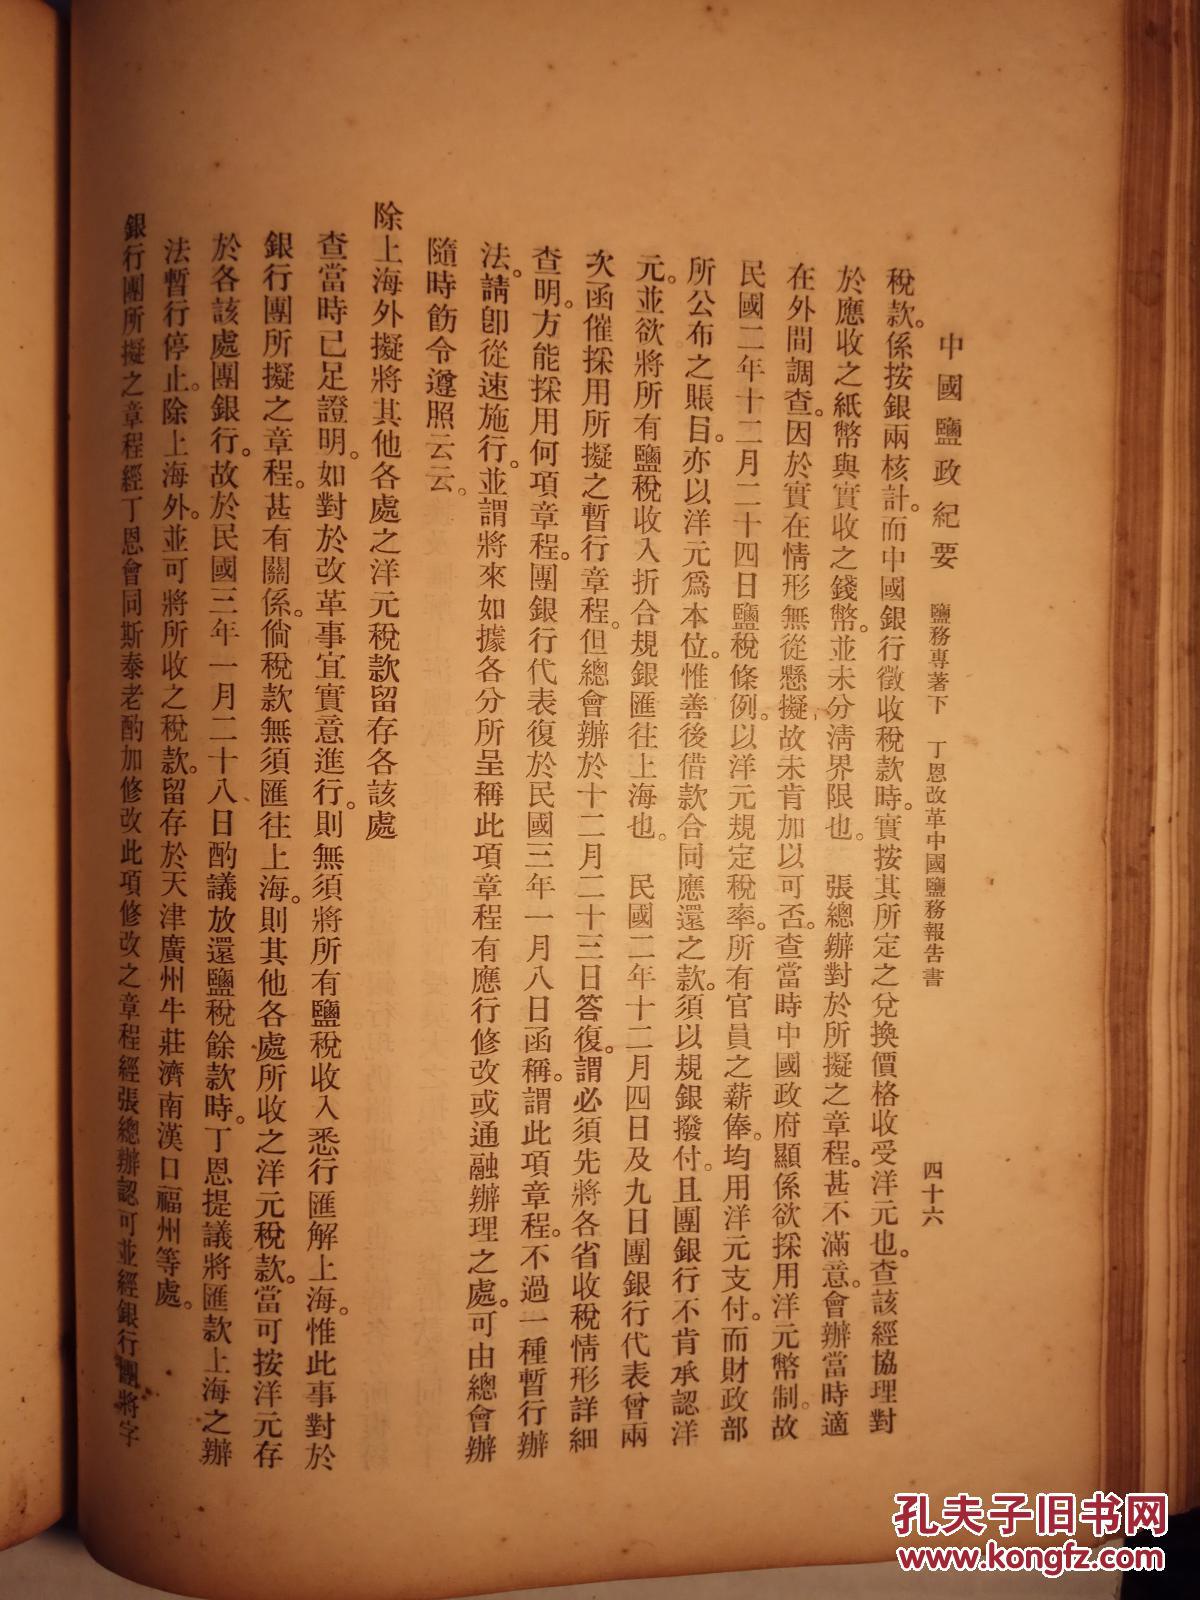 中國鹽政紀要　鹽務專著下　丁恩改革中國鹽務報告書　四十六
稅款。係按銀兩核計。而中國銀行徵收稅款時。實按其所定之兌換價格收受洋元也。查該經協理對
於應收之紙幣與實收之錢幣。並未分淸界限也。　張總辦對於所擬之章程。甚不滿意。會辦當時適
在外間調查。因於實在情形無從懸擬。故未肯加以可否。查當時中國政府顯係欲採用洋元幣制。故
民國二年十二月二十四日鹽稅條例。以洋元規定稅率。所有官員之薪俸。均用洋元支付。而財政部
所公布之賬目。亦以洋元爲本位。惟善後借款合同應還之款。須以規銀撥付。且團銀行不肯承認洋
元。並欲將所有鹽稅收入折合規銀匯往上海也。　民國二年十二月四日及九日團銀行代表曾兩
次函催採用所擬之暫行章程。但總會辦於十二月二十三日答復。謂必須先將各省收稅情形詳細
查明。方能採用何項章程。團銀行代表復於民國三年一月八日函稱。謂此項章程。不過一種暫行辦
法。請卽從速施行。並謂將來如據各分所呈稱此項章程有應行修改或通融辦理之處。可由總會辦
隨時飭令遵照云云。
除上海外擬將其他各處之洋元稅款留存各該處
查當時已足證明。如對於改革事宜實意進行。則無須將所有鹽稅收入悉行匯解上海。惟此事對於
銀行團所擬之章程。甚有關係。倘稅款無須匯往上海。則其他各處所收之洋元稅款。當可按洋元存
於各該處團銀行。故於民國三年一月二十八日酌議放還鹽稅餘款時。丁恩提議將匯款上海之辦
法暫行停止。除上海外。並可將所收之稅款。留存於天津廣州牛莊濟南漢口福州等處。
銀行團所擬之章程經丁恩會同斯泰老酌加修改此項修改之章程經張總辦認可並經銀行團將字
孔夫子旧书网
www.kongfz.com